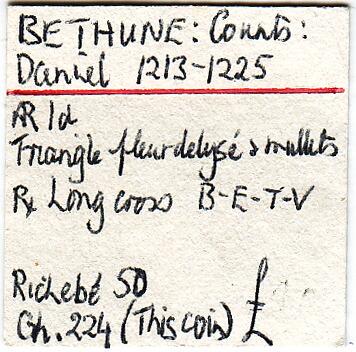 BETHUNE: Counts:
Daniel 1213-1225
AR 1d
Triangle fleurdelysé & mullets
Rx Long cross B-E-T-V
Richebé 50
Gh. 224 (This coin) £